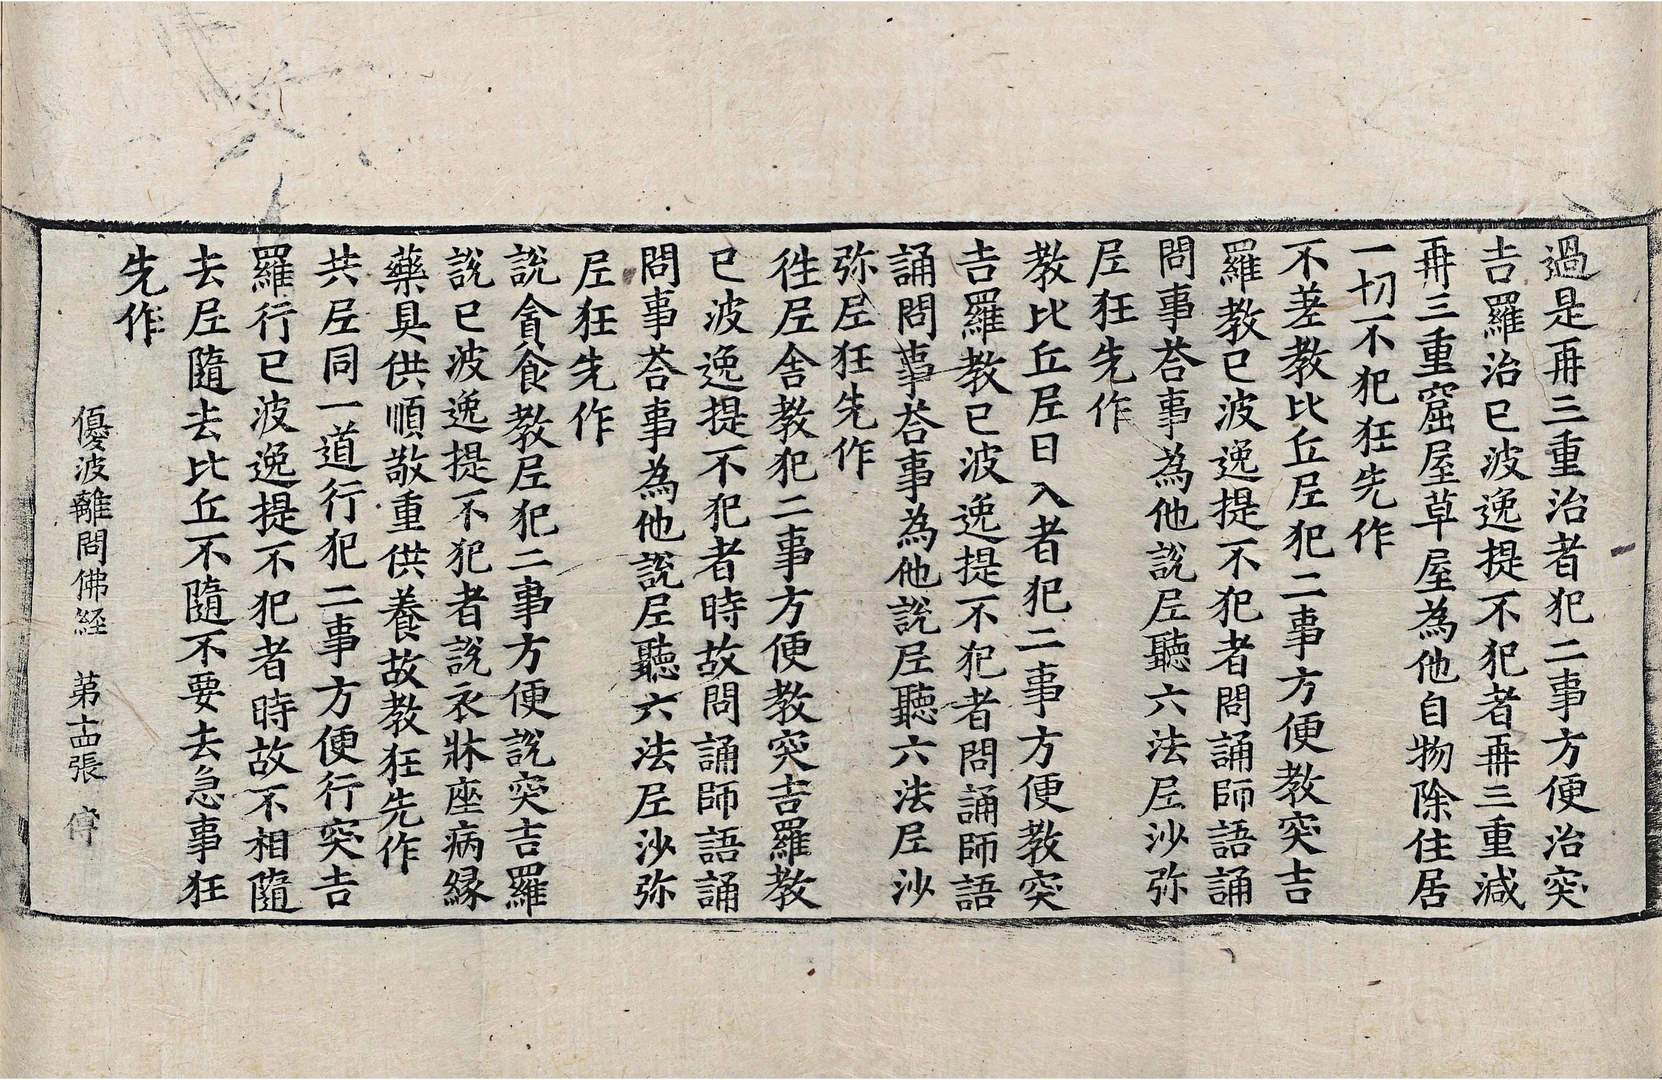 過是再三重治者犯二事方便治突
吉羅治已波逸提不犯者再三重減
再三重窟屋草屋為他自物除住居
一切不犯狂先作
不差教比丘𡰱犯二事方便教突吉
羅教已波逸提不犯者問誦師語誦
問事荅事為他說𡰱聽六法𡰱沙弥
𡰱狂先作
教比丘𡰱日入者犯二事方便教突
吉羅教已波逸提不犯者問誦師語
誦問事荅事為他說𡰱聽六法𡰱沙
弥𡰱狂先作
徃𡰱舍教犯二事方便教突吉羅教
已波逸提不犯者時故問誦師語誦
問事荅事為他說𡰱聽六法𡰱沙弥
𡰱狂先作
說貪食教𡰱犯二事方便說突吉羅
說已波逸提不犯者說衣牀座病縁
藥具供順敬重供養故教狂先作
共𡰱同一道行犯二事方便行突吉
羅行已波逸提不犯者時故不相隨
去𡰱隨去比丘不隨不要去急事狂
先作
優波離問佛経 第十四張